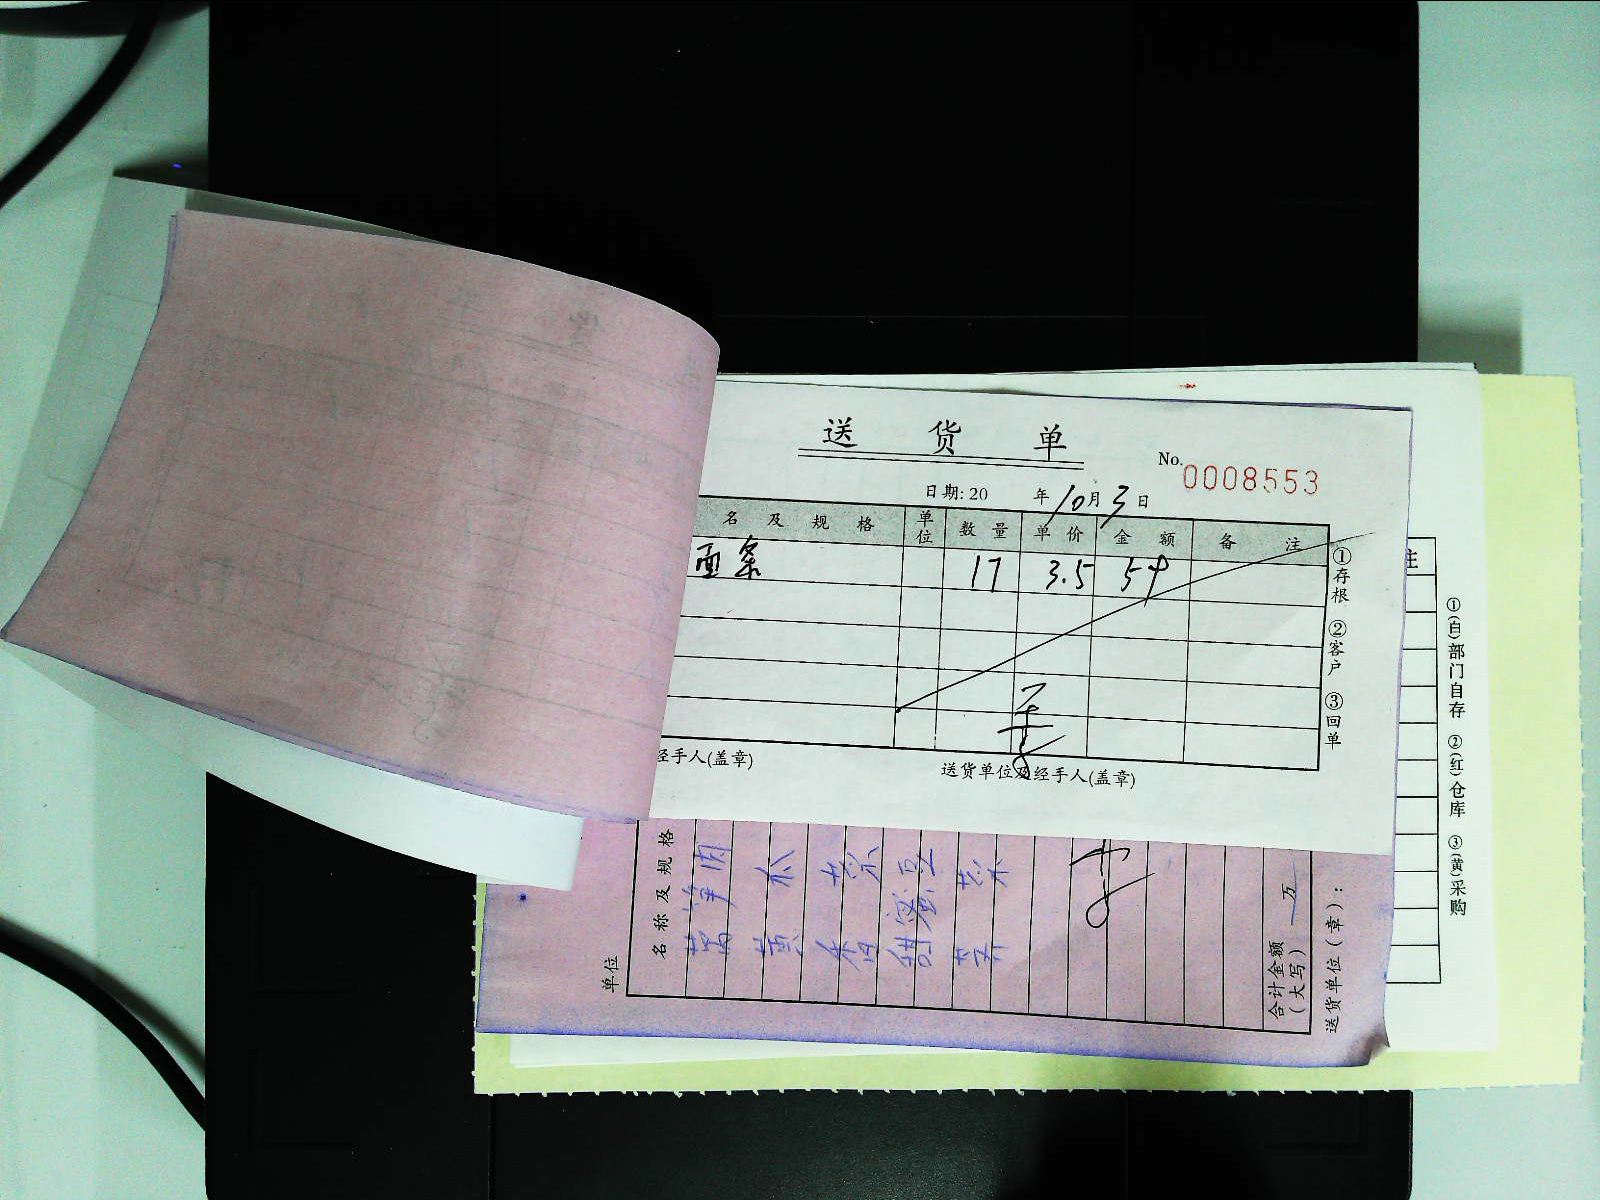 送 货 单
No. 0008553
日期: 20 年 10 月 3 日
名 及 规 格 单位 数 量 单 价 金 额 备 注
面条 17 3.5 54
①存根 ②客户 ③回单
经手人(盖章) 送货单位及经手人(盖章)
单位
名 称 及 规 格
黄 瓜
香 菜
合计金额(大写) 万
送货单位(章):
注
①(白)部门自存 ②(红)仓库 ③(黄)采购